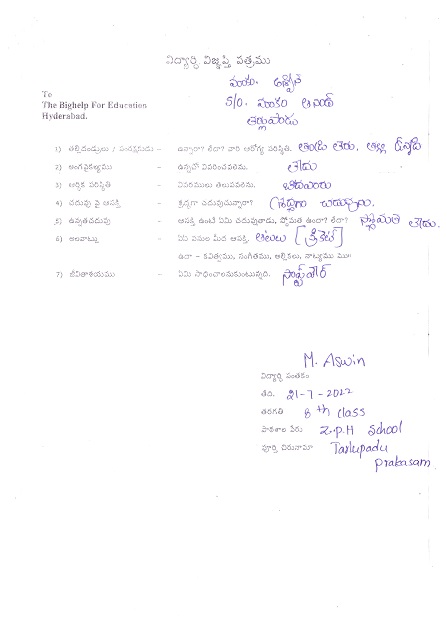 విద్యార్థి విజ్ఞప్తి పత్రము
To
The Bighelp For Education
Hyderabad.
మాకం. అశ్విన్
S/O. మాకం ఆనంద్
తర్లుపాడు
1) తల్లిదండ్రులు / సంరక్షకుడు - ఉన్నారా? లేదా? వారి ఆరోగ్య పరిస్థితి. తండ్రి లేరు. తల్లి
2) అంగవైకల్యము - ఉన్నచో వివరించవలెను. లేదు
3) ఆర్థిక పరిస్థితి - వివరములు తెలుపవలెను. బీదవారు
4) చదువు పై ఆసక్తి - శ్రద్ధగా చదువుచున్నారా? శ్రద్ధగా
5) ఉన్నతచదువు - ఆసక్తి ఉంటే ఏమి చదువుతాడు, స్తోమత ఉందా? లేదా? స్తోమత లేదు.
6) అలవాట్లు - ఏఏ పనుల మీద ఆసక్తి. ఆటలు [క్రికెట్]
ఉదా - కవిత్వము, సంగీతము, అల్లికలు, నాట్యము మొ॥
7) జీవితాశయము - ఏమి సాధించాలనుకుంటున్నది. సాఫ్ట్‌వేర్
M. Aswin
విద్యార్థి సంతకం
తేది. 21-7-2022
తరగతి 8th class
పాఠశాల పేరు Z.P.H School
పూర్తి చిరునామా Tarlupadu
prakasam.